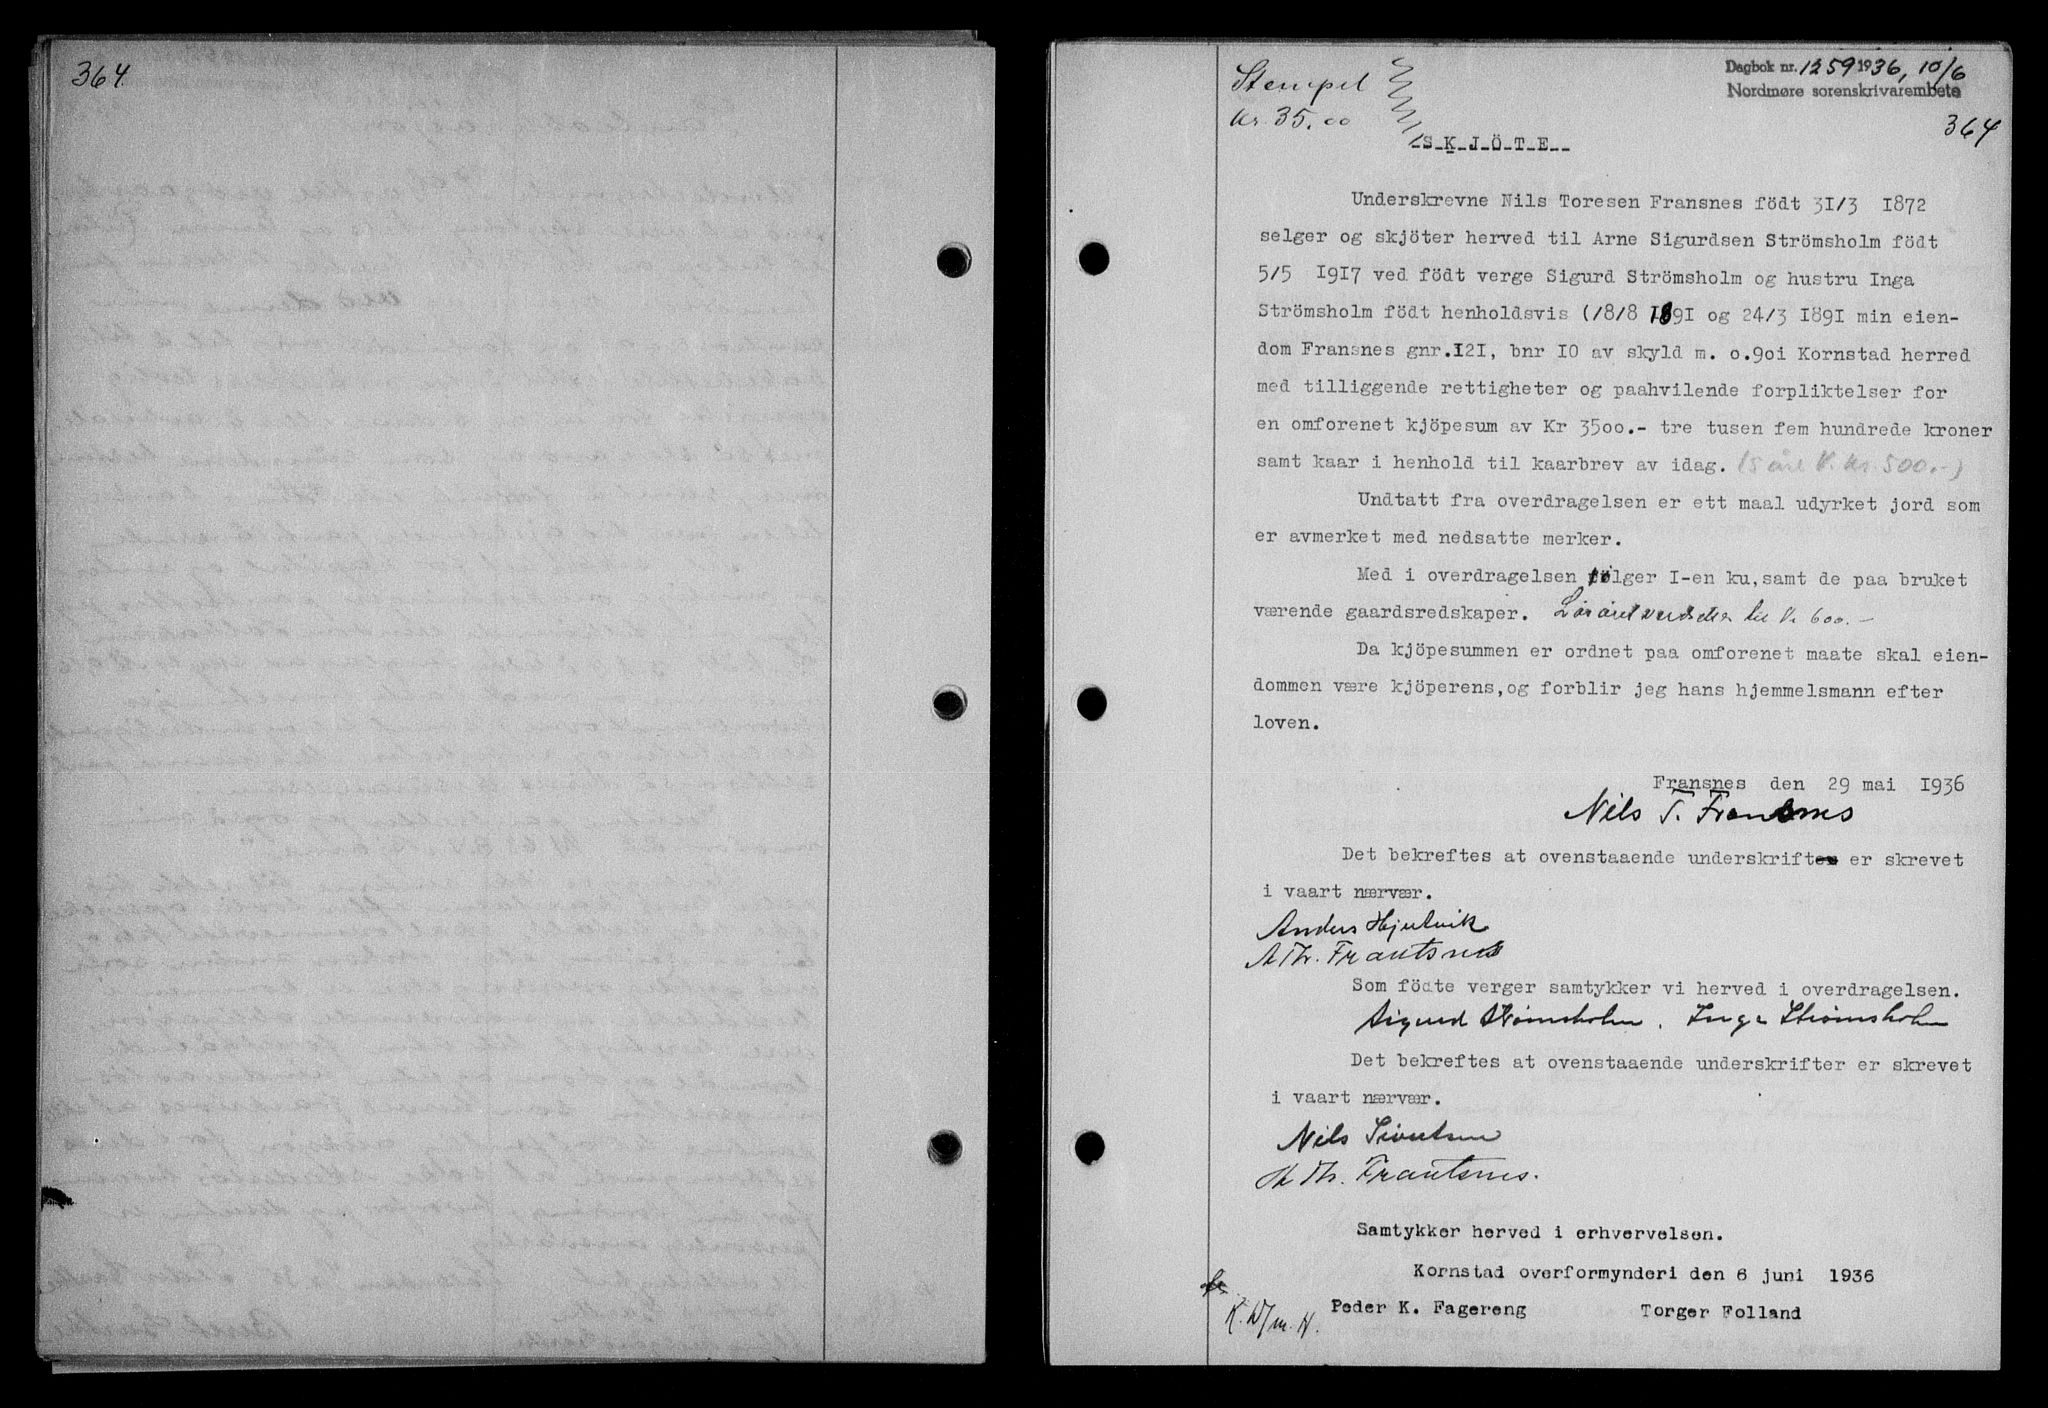 364.
Stempel
kr. 35.00
Dagbok nr. 1259 1936, 10/6
Nordmøre sorenskrivarembete
364
-S-K-J-Ö-T-E--
Underskrevne Nils Toresen Fransnes födt 31/3 1872
selger og skjöter herved til Arne Sigurdsen Strömsholm födt
5/5 1917 ved födt verge Sigurd Strömsholm og hustru Inga
Strömsholm födt henholdsvis (18/8 1891 og 24/3 1891 min eien-
dom Fransnes gnr.121, bnr 10 av skyld m. o.9oi Kornstad herred
med tilliggende rettigheter og paahvilende forpliktelser for
en omforenet kjöpesum av Kr 35oo.- tre tusen fem hundrede kroner
samt kaar i henhold til kaarbrev av idag. (5 årl. V. kr. 500.-)
Undtatt fra overdragelsen er ett maal udyrket jord som
er avmerket med nedsatte merker.
Med i overdragelsen fölger 1-en ku, samt de paa bruket
værende gaardsredskaper. til kr 600.-
Da kjöpesummen er ordnet paa omforenet maate skal eien-
dommen være kjöperens, og forblir jeg hans hjemmelsmann efter
loven.
Fransnes den 29 mai 1936
Nils T. Fransnes
Det bekreftes at ovenstaaende underskrift er skrevet
i vaart nærvær.
Anders Hjelvik
A Th. Frantsnes
Som födte verger samtykker vi herved i overdragelsen.
Sigurd Strømsholm. Inga Strømsholm
Det bekreftes at ovenstaaende underskrifter er skrevet
i vaart nærvær.
Nils Sivertsen
A Th. Frantsnes.
Samtykker herved i erhvervelsen.
Kornstad overformynderi den 6 juni 1936
Peder K. Fagereng Torger Folland